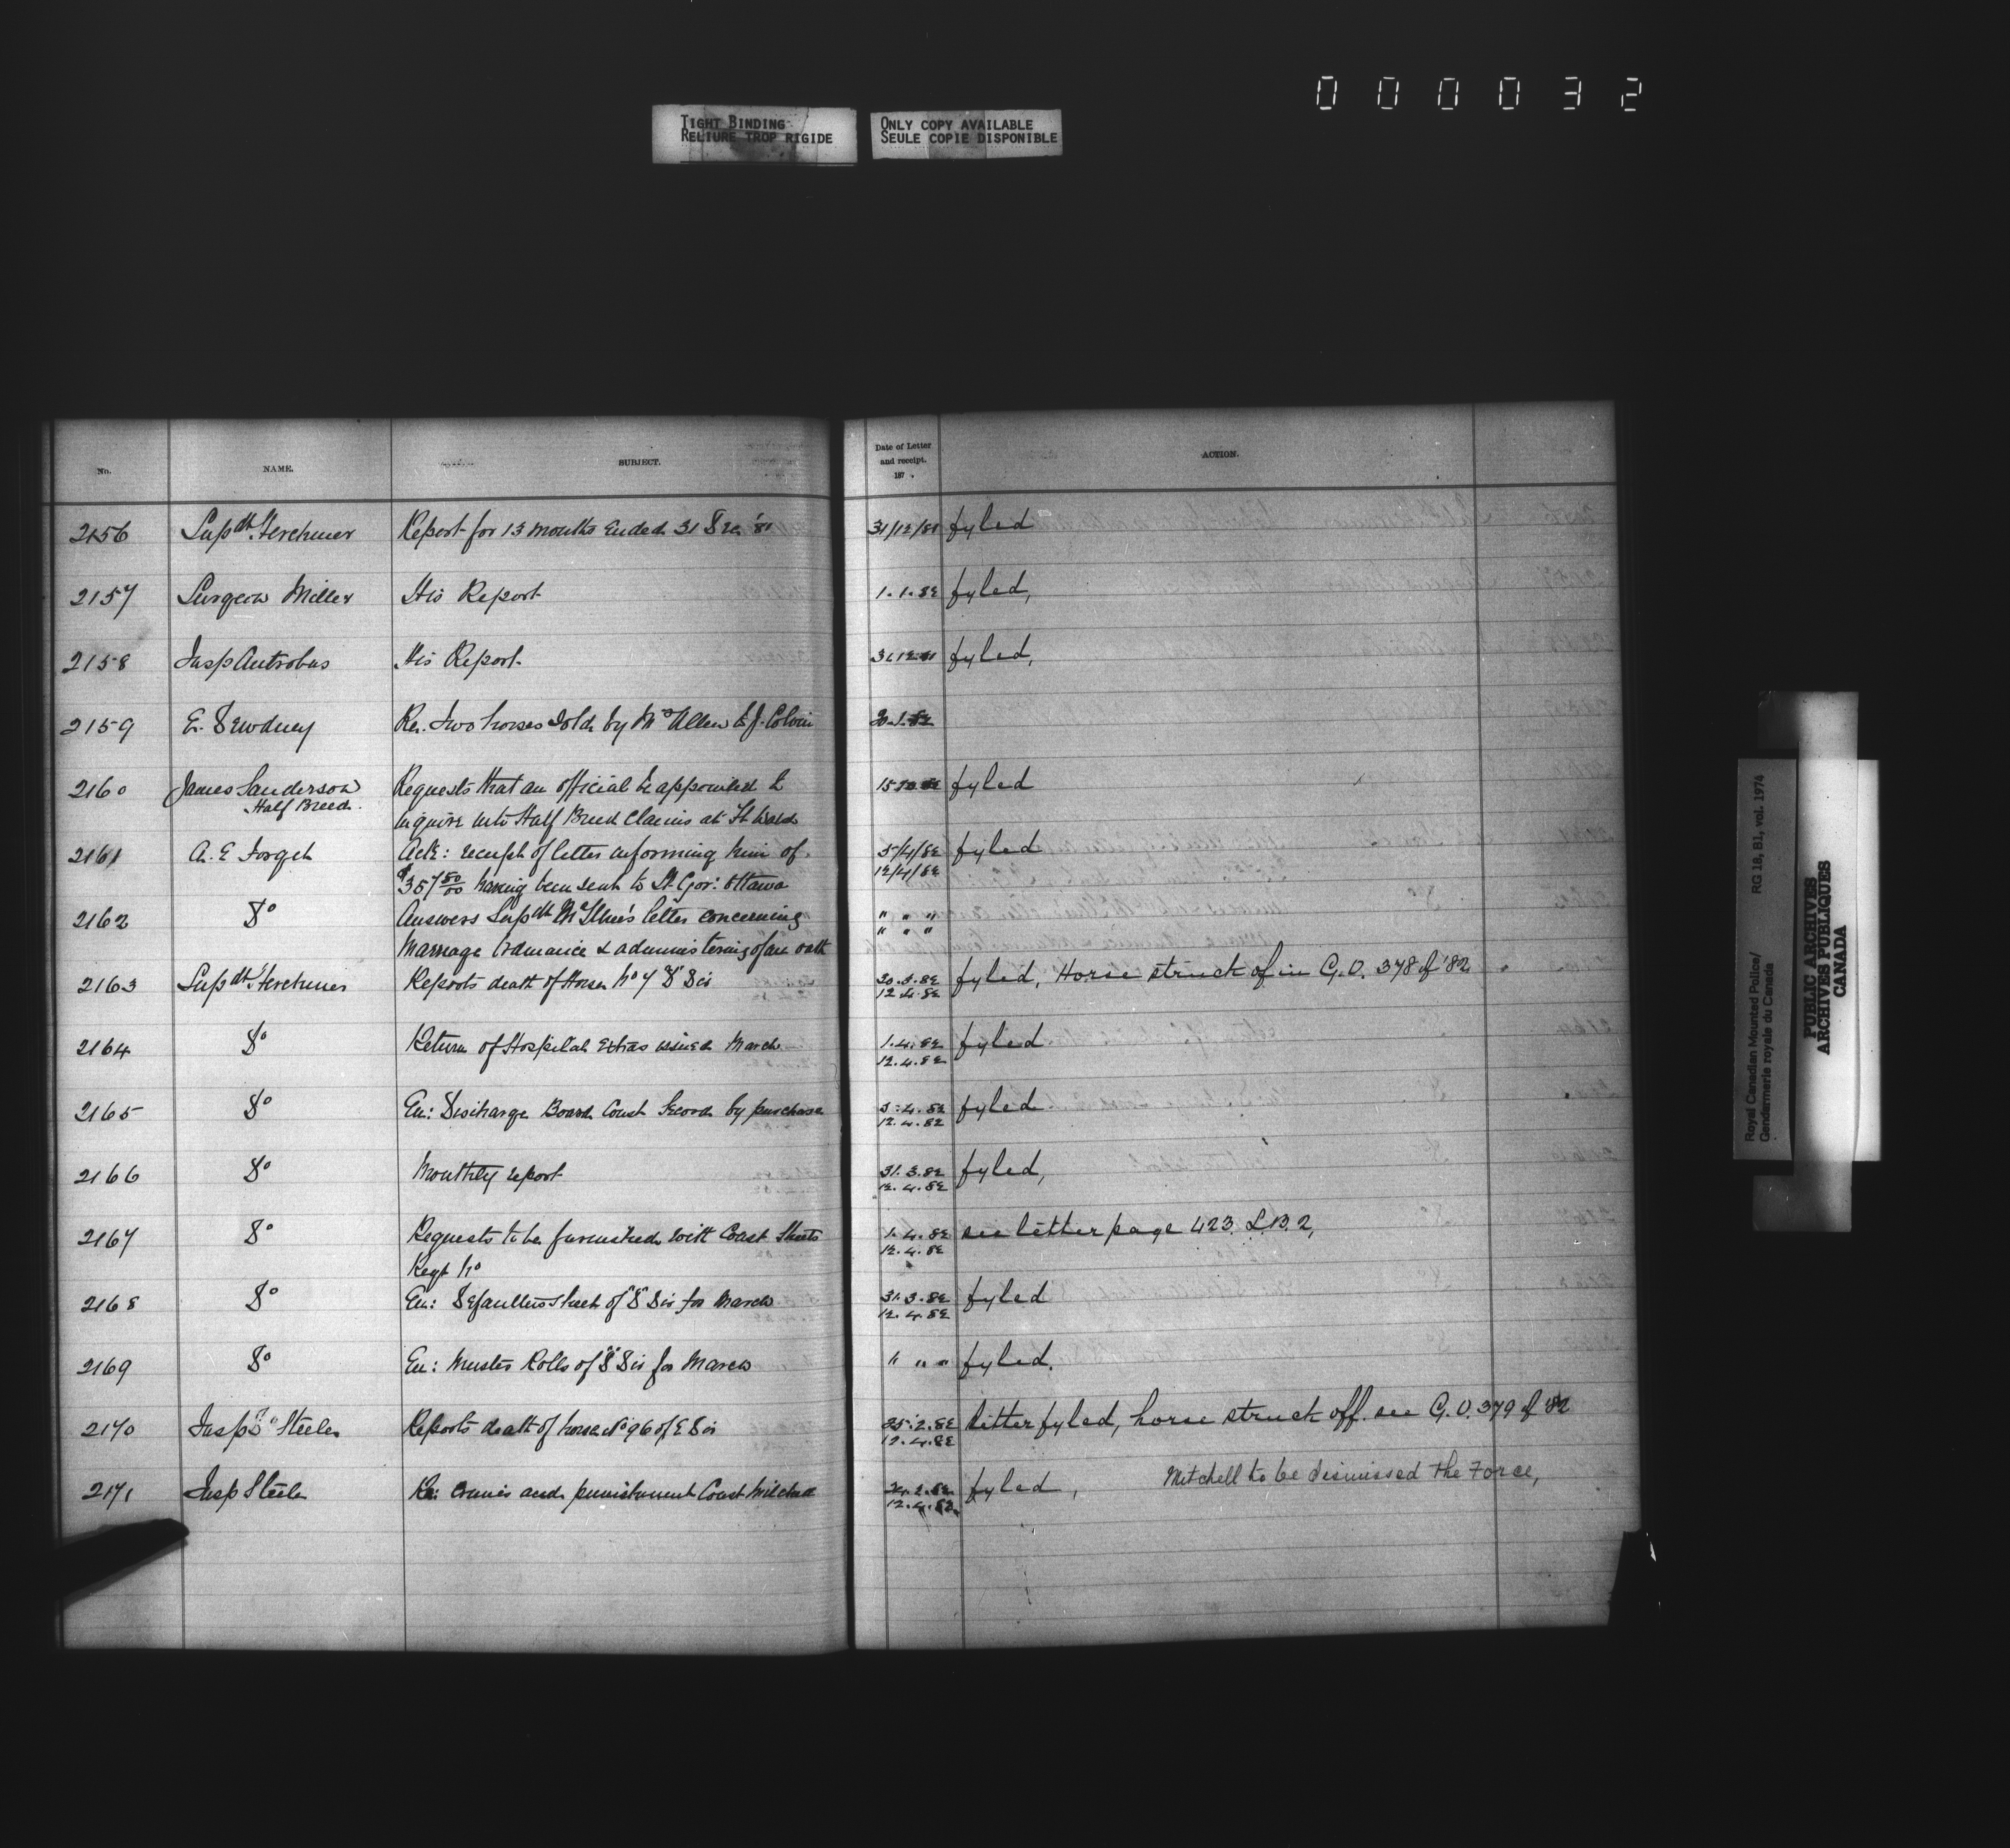 0 0 0 0 3 2
TIGHT BINDING
RELIURE TROP RIGIDE
ONLY COPY AVAILABLE
SEULE COPIE DISPONIBLE
No. NAME. SUBJECT. Date of Letter and receipt. 187 . ACTION.
2156 Supdt. Herchmer Report for 13 months ended 31 Dec '81 31/12/81 fyled
2157 Surgeon Miller His Report 1.1.82 fyled,
2158 Insp Antrobus His Report 31.12.81 fyled,
2159 E. Dewdney Re. two horses sold by Mr Allen to J. Colvin 20.1.82
2160 James Sanderson Requests that an official be appointed to 15 fyled
Half Breed. inquire into Half Breed Claims at Ft Walsh
2161 A. E Forget Ack: receipt of letter informing him of 5/4/82 fyled
$357 50/00 having been sent to Lt. Gov: Ottawa 12/4/82
2162 Do Answers Supdt McIllree's letter concerning " " "
Marriage Ordinance & administering of an oath " " "
2163 Supdt. Herchmer Reports death of Horse No 7 "D" Div 20.3.82 fyled, Horse struck of in G.O. 378 of '82
12.4.82
2164 Do Return of Hospital Extras issued March 1.4.82 fyled
12.4.82
2165 Do En: Discharge Board Const Secord by purchase 3.4.82 fyled
12.4.82
2166 Do Monthly report 31.3.82 fyled,
12.4.82
2167 Do Requests to be furnished with Const Sheets 1.4.82 see letter page 423 L.B.2,
Regt No 12.4.82
2168 Do En: Defaulters sheet of "D" Div for March 31.3.82 fyled
12.4.82
2169 Do En: Muster Rolls of "D" Div for March " " " fyled.
2170 Insp Steele Reports death of horse No 96 of E Div 25.2.82 letter fyled, horse struck off. see G.O. 379 of '82
12.4.82
2171 Insp Steele Re: crimes and punishment Const Mitchell 24.2.82 fyled, Mitchell to be dismissed the Force,
12.4.82
Royal Canadian Mounted Police/
Gendarmerie royale du Canada
RG 18, B1, vol. 1974
PUBLIC ARCHIVES
ARCHIVES PUBLIQUES
CANADA